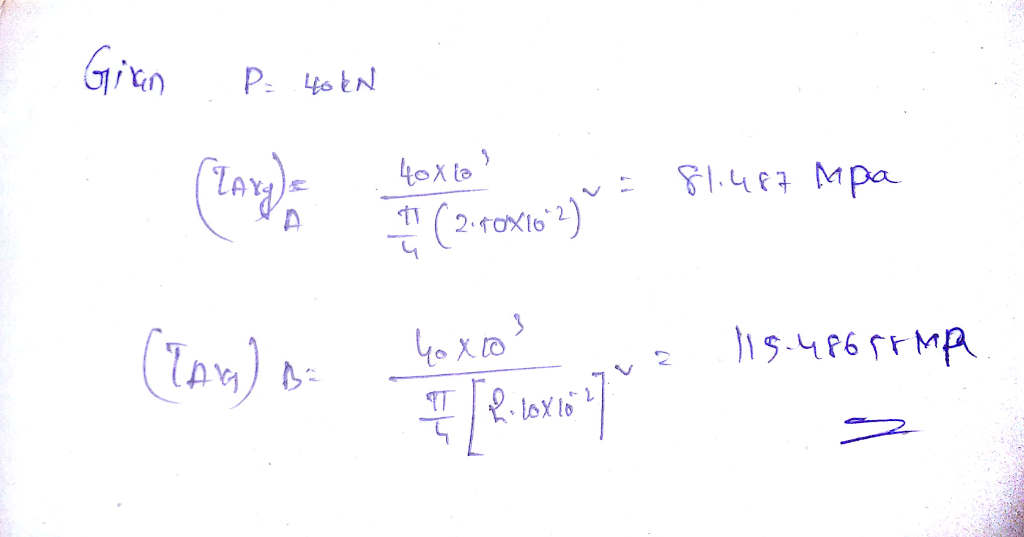 Given P = 40 kN
(τAvg)A = 40×10³ / π/4 (2.50×10⁻²)² = 81.487 Mpa
(τAvg)B = 40×10³ / π/4 [2.10×10⁻²]² = 115.48658 MPa